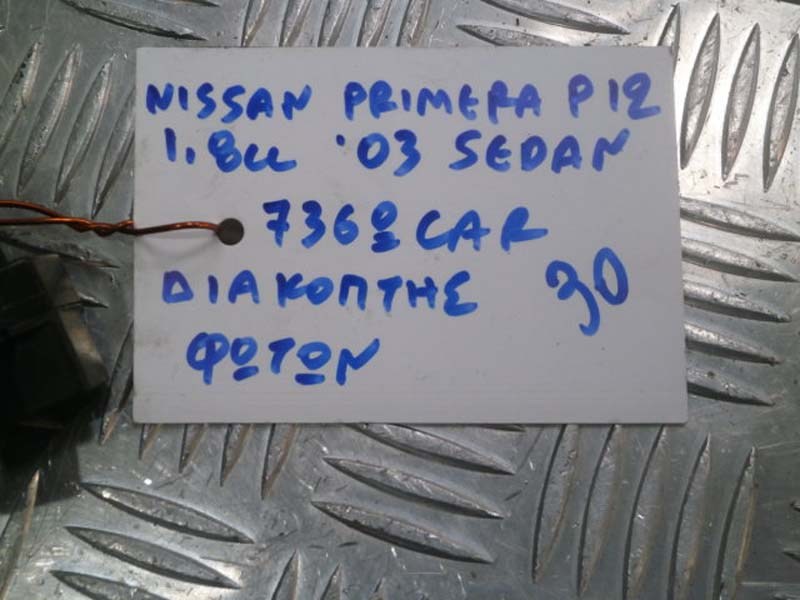 NISSAN PRIMERA P12
1.8cc '03 SEDAN
736º CAR
ΔΙΑΚΟΠΤΗΣ 30
ΦΩΤΩΝ